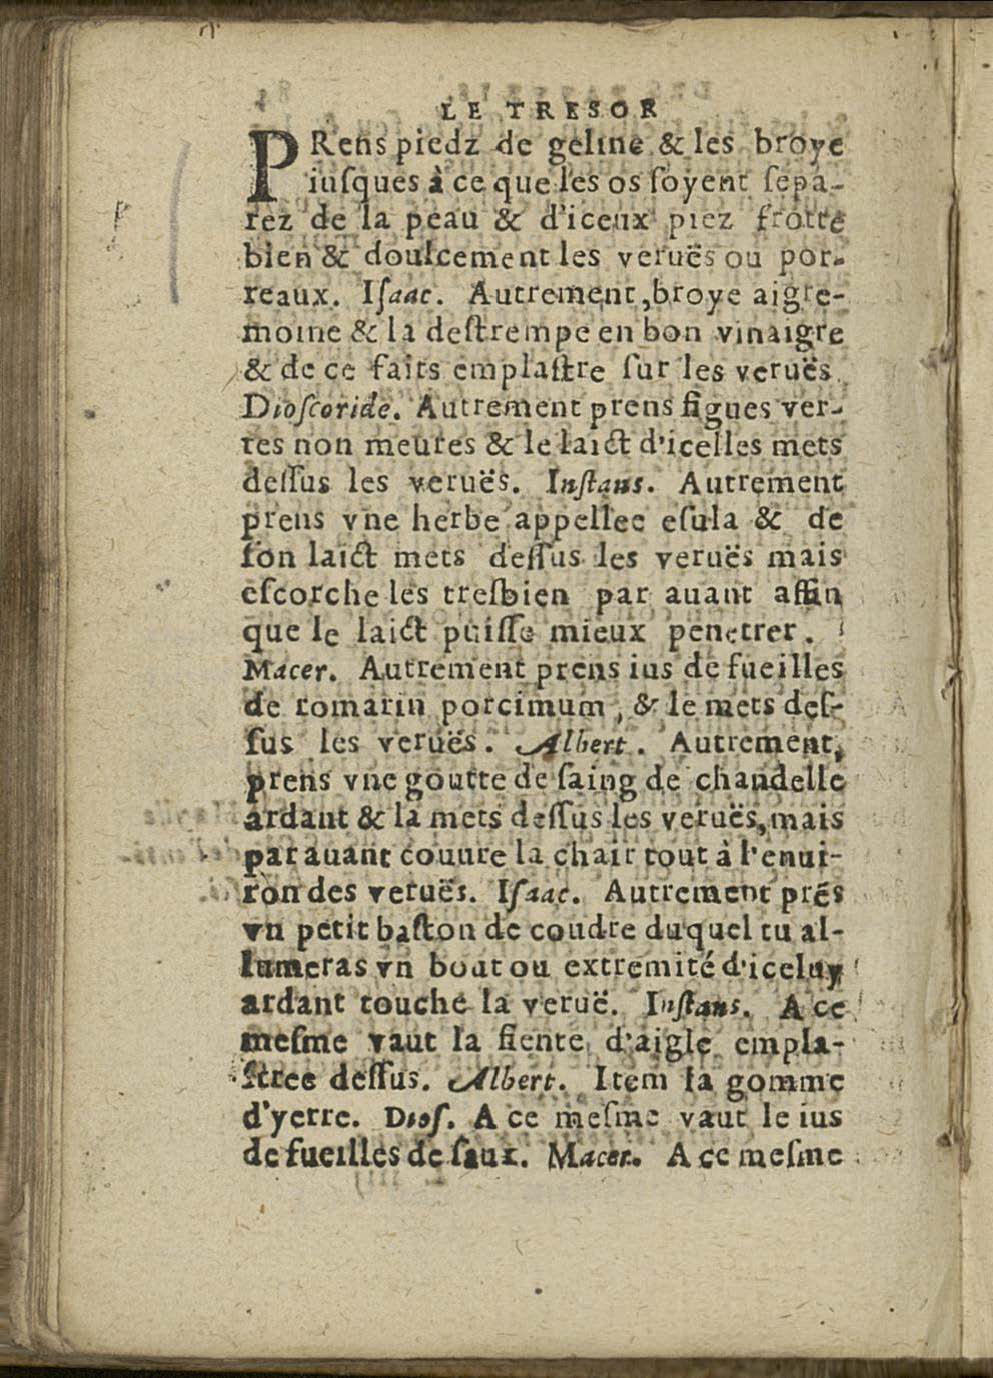 LE TRESOR
PRens piedz de geline & les broye
iuſques à ce que les os ſoyent ſepa-
rez de la peau & d'iceux piez frotte
bien & doulcement les veruës ou por-
reaux. Iſaac. Autrement, broye aigre-
moine & la deſtrempe en bon vinaigre
& de ce faits emplaſtre ſur les veruës.
Dioſcoride. Autrement prens figues ver-
tes non meures & le laict d'icelles mets
deſſus les veruës. Inſtans. Autrement
prens vne herbe appellee eſula & de
ſon laict mets deſſus les veruës mais
eſcorche les treſbien par auant affin
que le laict puiſſe mieux penetrer.
Macer. Autrement prens ius de fueilles
de romarin porcimum, & le mets deſ-
ſus les veruës. Albert. Autrement,
prens vne goutte de ſaing de chandelle
ardant & la mets deſſus les veruës, mais
par auant couure la chair tout à l'enui-
ron des veruës. Iſaac. Autrement prés
vn petit baſton de coudre duquel tu al-
lumeras vn bout ou extremité d'iceluy
ardant touche la veruë. Inſtans. A ce
meſme vaut la fiente d'aigle empla-
ſtree deſſus. Albert. Item la gomme
d'yerre. Dioſ. A ce meſme vaut le ius
de fueilles de ſaux. Macer. A ce meſme